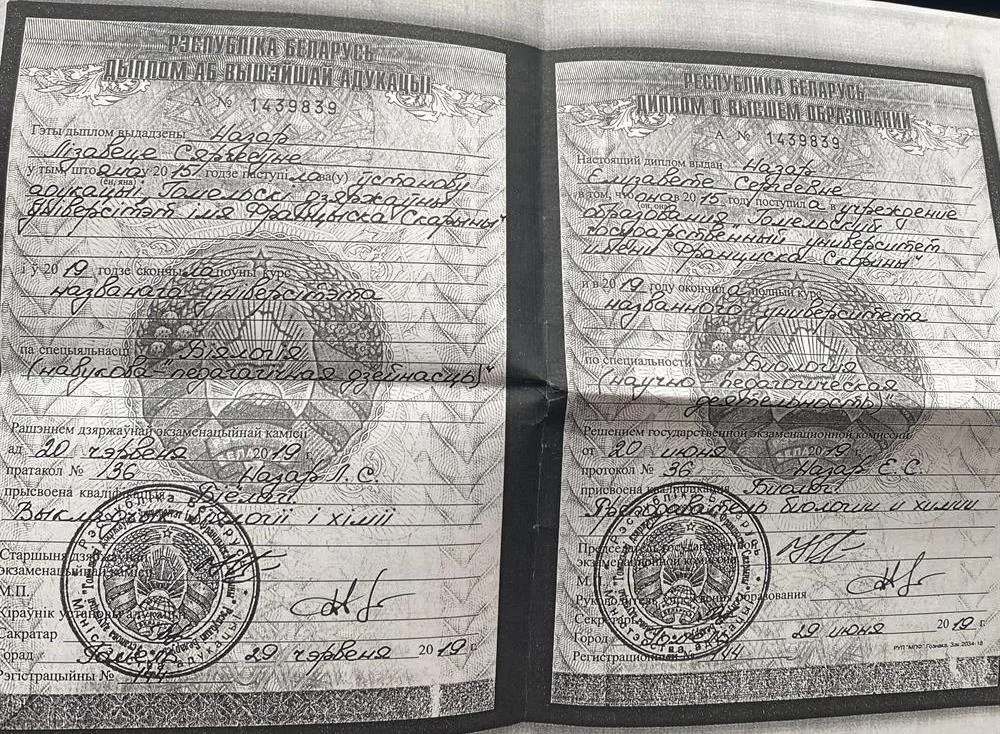 РЭСПУБЛІКА БЕЛАРУСЬ
ДЫПЛОМ АБ ВЫШЭЙШАЙ АДУКАЦЫІ
А № 1439839
Гэты дыплом выдадзены Назар
Лізавеце Сяргееўне
у тым, што яна у 2015 годзе паступіла ва(у) ўстанову
(ён, яна)
адукацыі "Гомельскі дзяржаўны
ўніверсітэт імя Францыска Скарыны"
і ў 2019 годзе скончыла поўны курс
названага ўніверсітэта
па спецыяльнасці "Біялогія
(навукова-педагагічная дзейнасць)"
Рашэннем дзяржаўнай экзаменацыйнай камісіі
ад 20 чэрвеня 2019 г.
пратакол № 136 Назар Л.С.
прысвоена кваліфікацыя Біёлаг.
Выкладчык біялогіі і хіміі
Старшыня дзяржаўнай
экзаменацыйнай камісіі
М.П.
Кіраўнік установы адукацыі
Сакратар
горад 29 чэрвеня 2019 г.
Рэгістрацыйны № 144
РЕСПУБЛИКА БЕЛАРУСЬ
ДИПЛОМ О ВЫСШЕМ ОБРАЗОВАНИИ
А № 1439839
Настоящий диплом выдан Назар
Елизавете Сергеевне
в том, что она в 2015 году поступила в учреждение
(он, она)
образования "Гомельский
государственный университет
имени Франциска Скорины"
и в 2019 году окончила полный курс
названного университета
по специальности "Биология
(научно-педагогическая
деятельность)"
Решением государственной экзаменационной комиссии
от 20 июня 2019 г.
протокол № 36 Назар Е.С.
присвоена квалификация Биолог.
Преподаватель биологии и химии
Председатель государственной
экзаменационной комиссии
М.П.
Руководитель учреждения образования
Секретарь
Город 29 июня 2019 г.
Регистрационный № 144
РУП "МПФ" Гознака. Зак. 2034-18